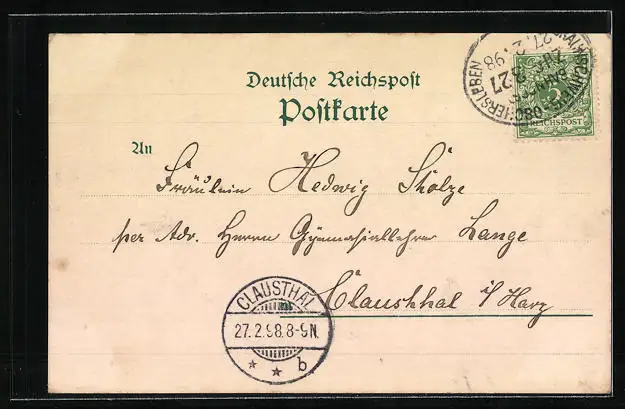 Deutsche Reichspost
Postkarte
OSCHERSLEBEN
27.2.98
5
REICHSPOST
An
Fräulein Hedwig Stolze
per Adr. Herrn Gymnasiallehrer Lange
Clausthal i/Harz
CLAUSTHAL
27.2.98.8-9N.
* * b